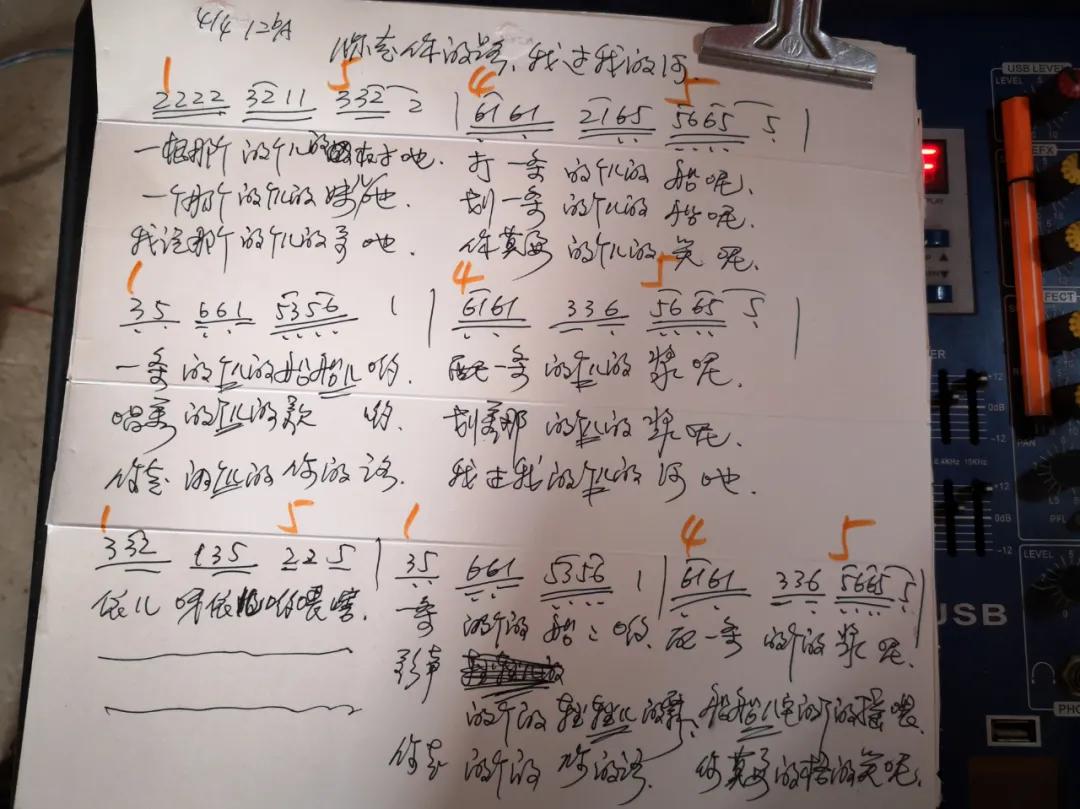 4/4 1=bA
你走你的路，我过我的河
1 5 4 5
2222 3211 332 2 | 6161 2165 5665 5 |
一根那个的个儿的 吔. 打一条的个儿的船呢.
一个那个的个儿的妹儿吔. 划一条的个儿的船呢.
我说那个的个儿的哥吔. 你莫要的个儿的笑呢.
1 4 5
35 661 5356 1 | 6161 336 5665 5 |
一条的个儿的船船儿哟. 配一条的个儿的桨呢.
唱美的个儿的歌哟. 划美那的个儿的桨呢.
你走的个儿的你的路. 我过我的个儿的河吔.
1 5 1 4 5
332 135 225 | 35 661 5356 1 | 6161 336 5665 5 |
依儿呀依 哟喂嗐. 一条 的个的船船哟. 配一条的个的桨呢.
歌声
的个的 船船儿 的个的 喂
你走的个的你的路. 你莫要的格的笑呢.
USB LEVEL
LEVEL
EFX
+12
0dB
-12
6.4KHz 15KHz
PAN
+12
0dB
-12
PFL
LEVEL
USB